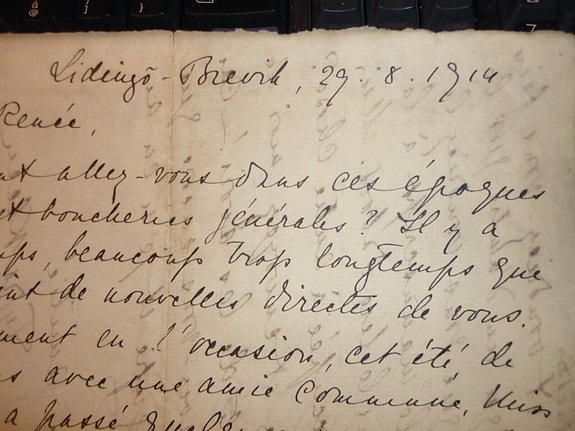 Lidingö-Brevik, 29.8.1914
Renée,
allez-vous dans ces époques
et boucheries générales? Il y a
beaucoup trop longtemps que
de nouvelles directes de vous.
en l'occasion, cet été, de
avec une amie commune, Miss
a passé